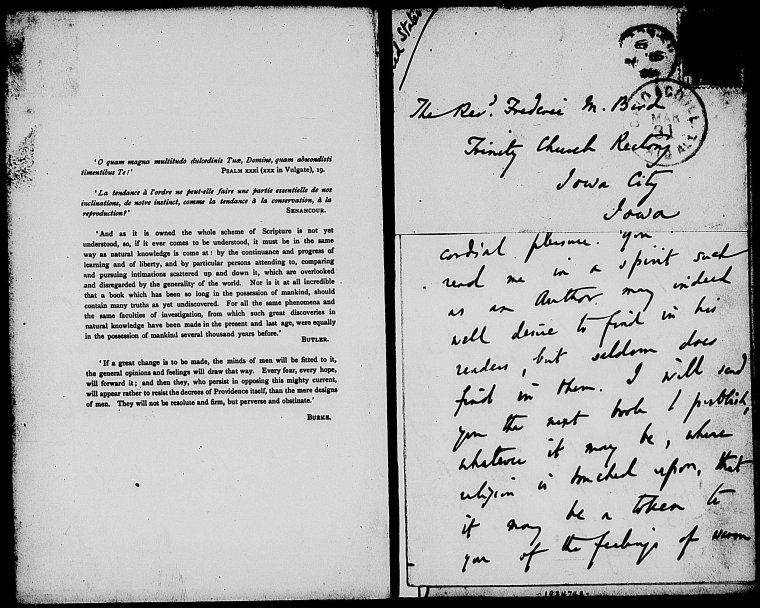 'O quam magna multitudo dulcedinis Tuæ, Domine, quam abscondisti
timentibus Te!' PSALM xxxi (xxx in Vulgate), 19.
'La tendance à l'ordre ne peut-elle faire une partie essentielle de nos
inclinations, de notre instinct, comme la tendance à la conservation, à la
reproduction?' SENANCOUR.
'And as it is owned the whole scheme of Scripture is not yet
understood, so, if it ever comes to be understood, it must be in the same
way as natural knowledge is come at: by the continuance and progress of
learning and of liberty, and by particular persons attending to, comparing
and pursuing intimations scattered up and down it, which are overlooked
and disregarded by the generality of the world. Nor is it at all incredible
that a book which has been so long in the possession of mankind, should
contain many truths as yet undiscovered. For all the same phenomena and
the same faculties of investigation, from which such great discoveries in
natural knowledge have been made in the present and last age, were equally
in the possession of mankind several thousand years before.'
BUTLER.
'If a great change is to be made, the minds of men will be fitted to it,
the general opinions and feelings will draw that way. Every fear, every hope,
will forward it; and then they, who persist in opposing this mighty current,
will appear rather to resist the decrees of Providence itself, than the mere designs
of men. They will not be resolute and firm, but perverse and obstinate.'
BURKE.
States
The Revd. Frederic M. Bird
Trinity Church Rectory
Iowa City
Iowa
MAR
31
cordial pleasure. You
read me in a spirit such
as an Author may indeed
well desire to find in his
readers, but seldom does
find in them. I will send
you the next book I publish,
whatever it may be, where
religion is touched upon, that
it may be a token to
you of the feelings of warm